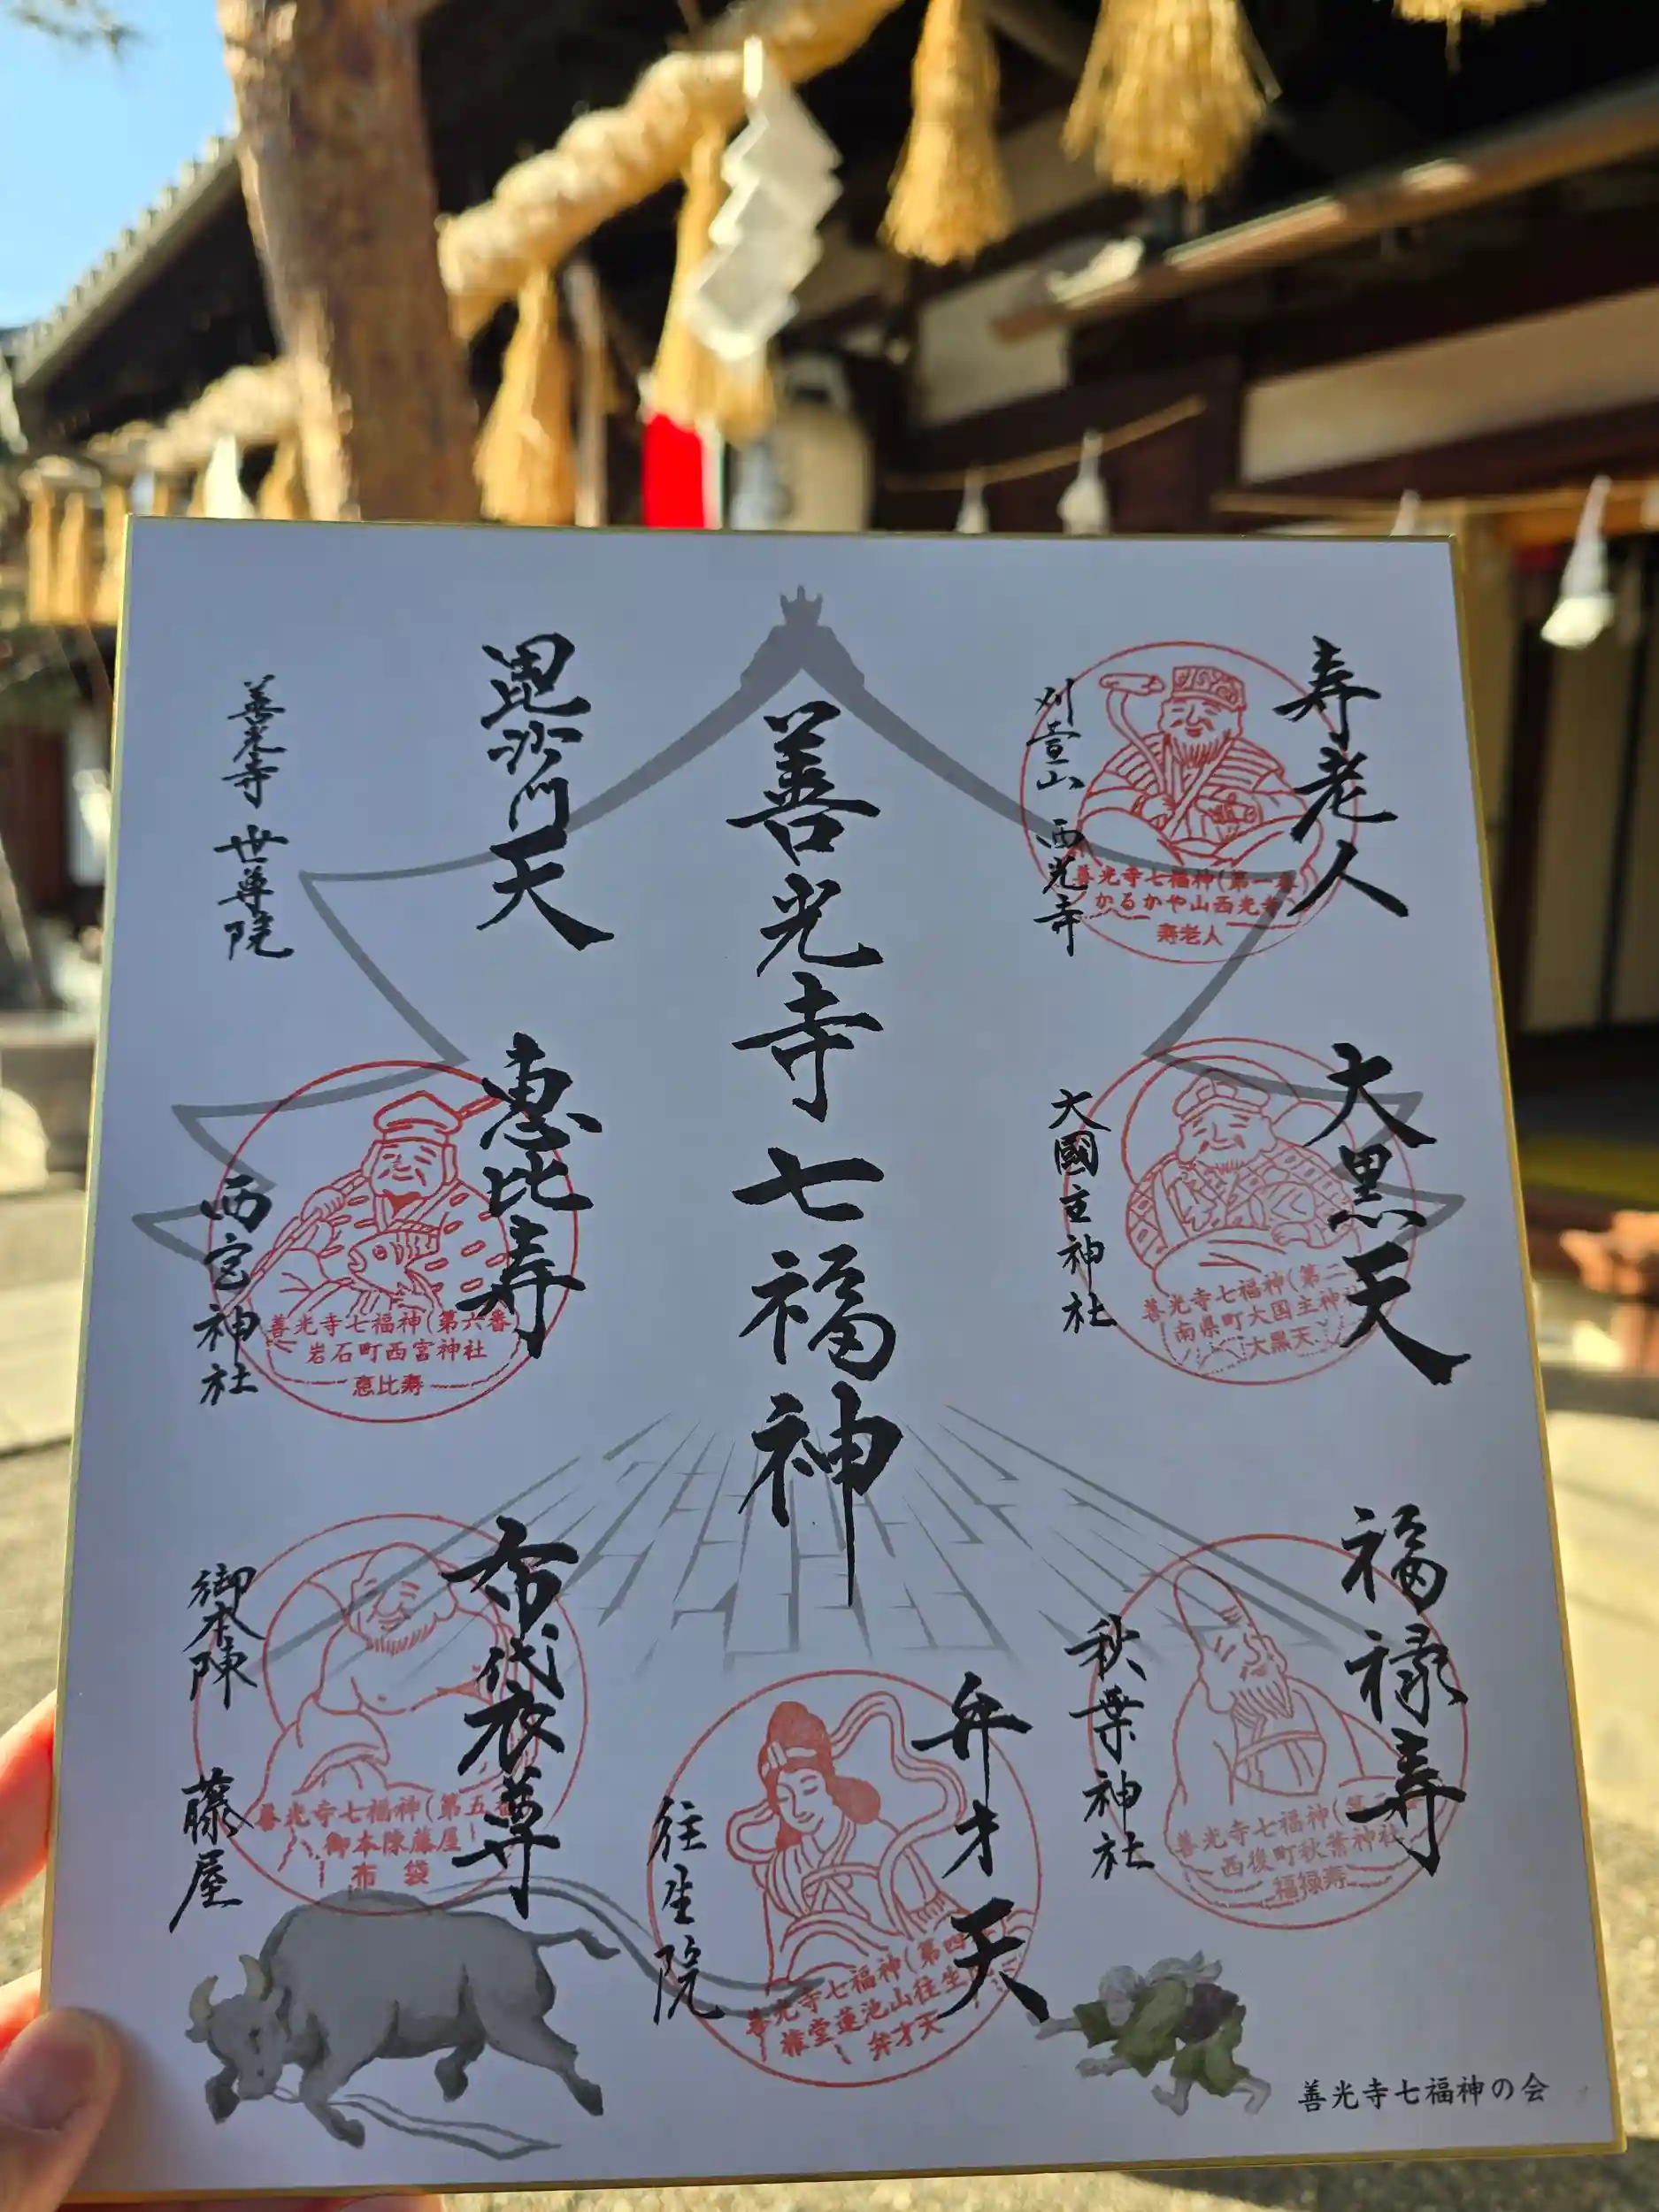 善光寺七福神
寿老人
刈萱山 西光寺
善光寺七福神(第一番)
かるかや山西光寺
寿老人
大黒天
大國主神社
善光寺七福神(第二
南県町大国主神社
大黒天
福禄寿
秋葉神社
善光寺七福神(第三
西後町秋葉神社
福禄寿
弁才天
往生院
善光寺七福神(第四
権堂蓮池山往生
弁才天
毘沙門天
善光寺 世尊院
恵比寿
西宮神社
善光寺七福神(第六番)
岩石町西宮神社
恵比寿
布袋尊
御本陳 藤屋
善光寺七福神(第五番
御本陳藤屋
布袋
善光寺七福神の会